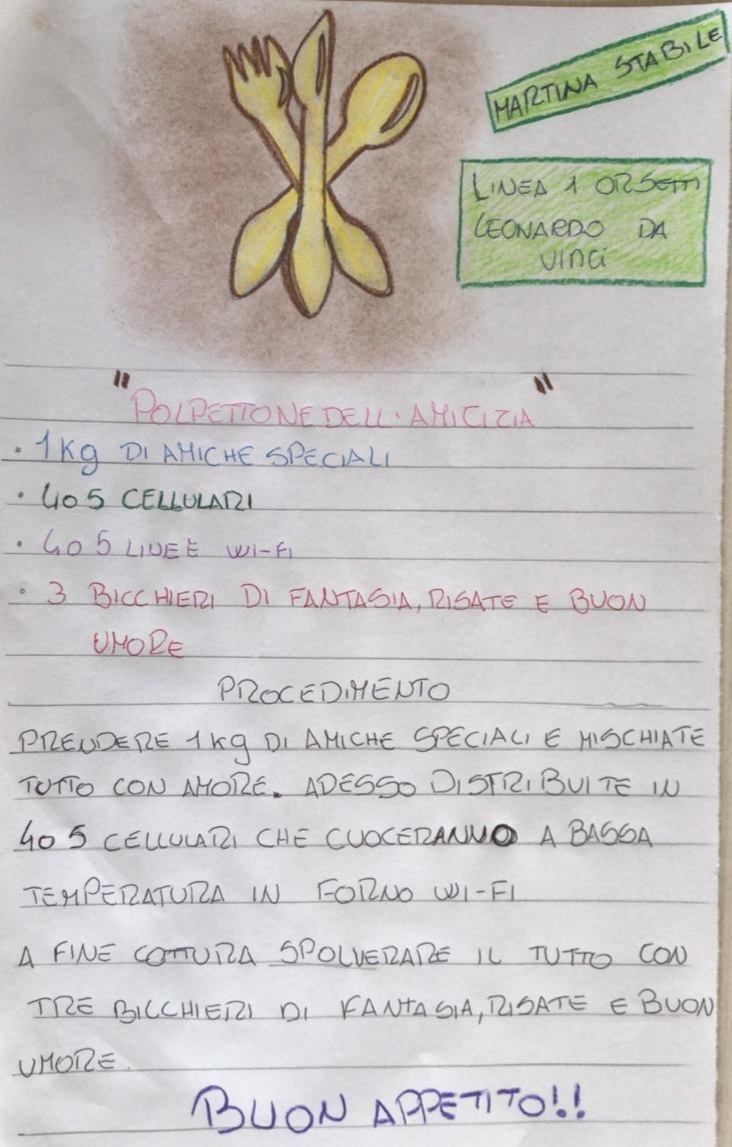 MARTINA STABILE
LINEA 1 ORSETTI
LEONARDO DA
VINCI
"POLPETTONE DELL'AMICIZIA"
· 1 Kg DI AMICHE SPECIALI
· 4 o 5 CELLULARI
· 4 o 5 LINEE WI-FI
· 3 BICCHIERI DI FANTASIA, RISATE E BUON
UMORE
PROCEDIMENTO
PRENDERE 1 Kg DI AMICHE SPECIALI E MISCHIATE
TUTTO CON AMORE. ADESSO DISTRIBUITE IN
4 o 5 CELLULARI CHE CUOCERANNO A BASSA
TEMPERATURA IN FORNO WI-FI
A FINE COTTURA SPOLVERARE IL TUTTO CON
TRE BICCHIERI DI FANTASIA, RISATE E BUON
UMORE.
BUON APPETITO!!